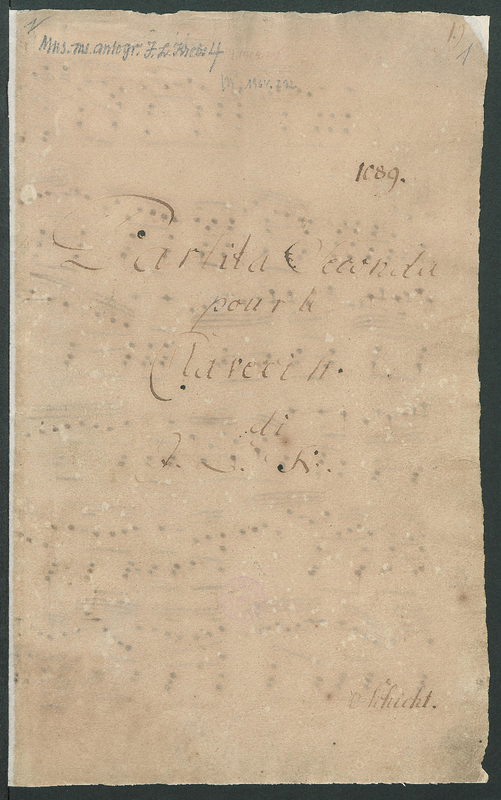 Mus. ms. autogr. J. L. Krebs 4
M. 1904. 792.
1.)
1
1089.
Partita Seconda
pour le
Clavecin.
di
J. L. K.
Schicht.